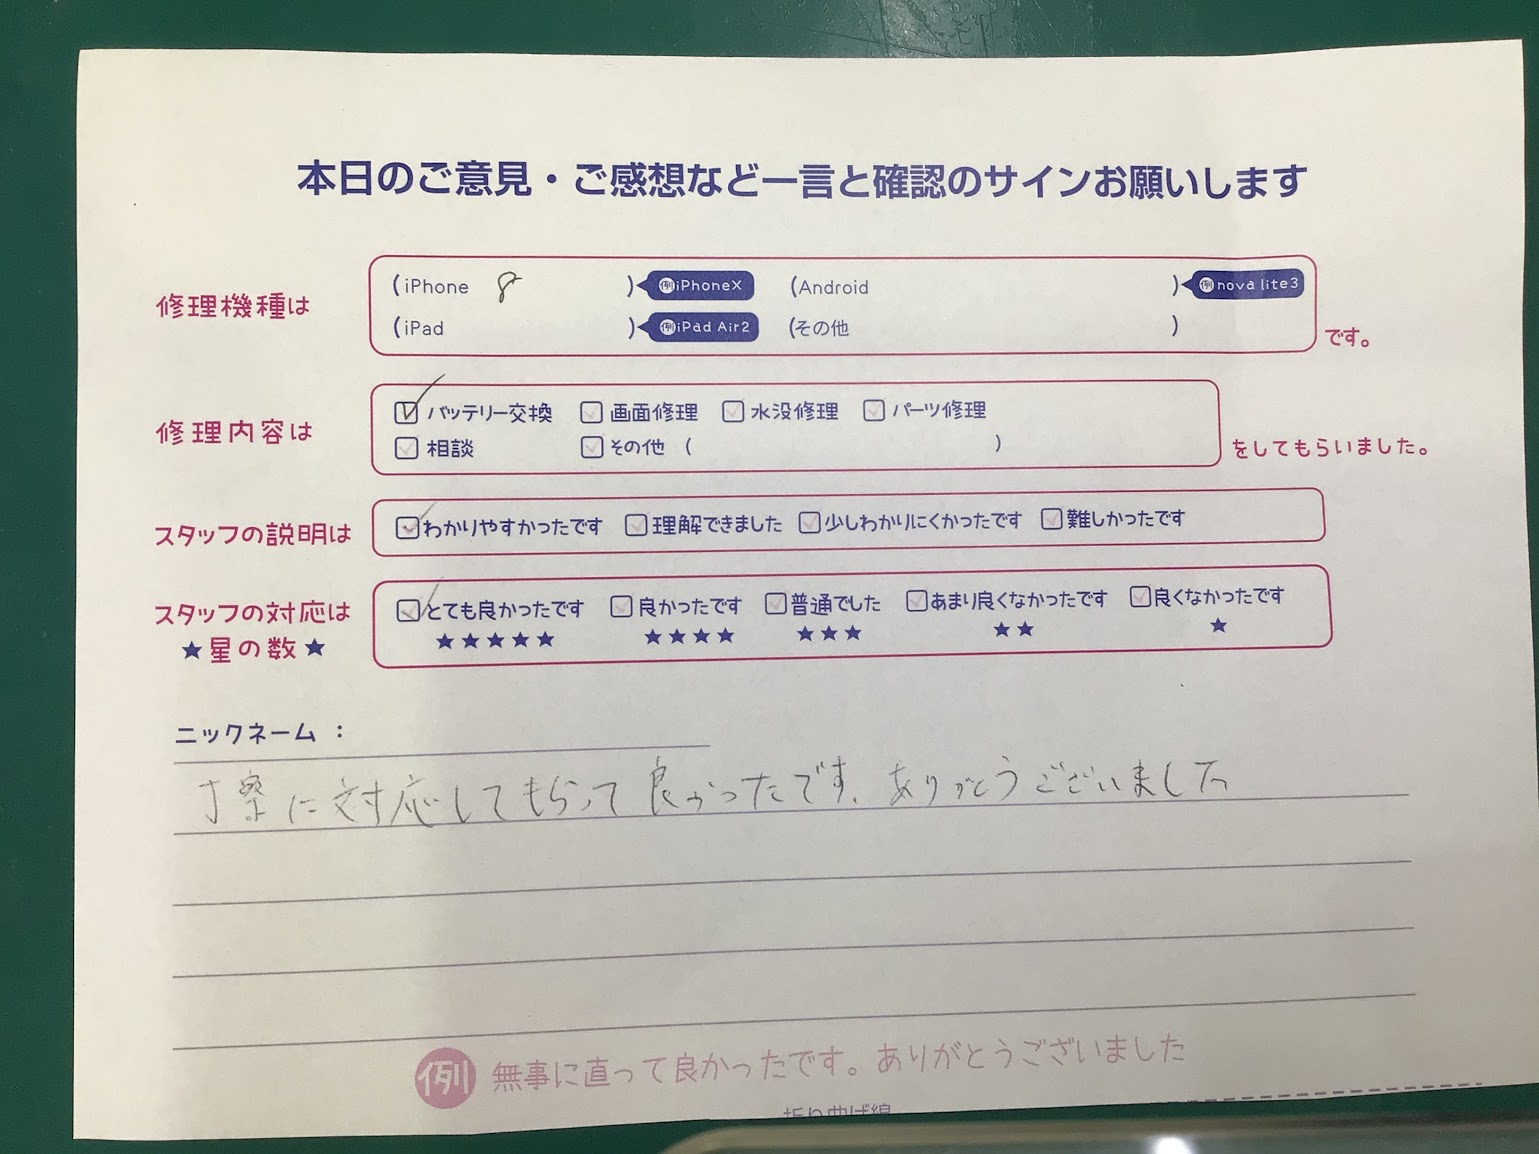 本日のご意見・ご感想など一言と確認のサインお願いします
修理機種は
(iPhone 8 ) 例iPhoneX (Android ) 例nova lite3
(iPad ) 例iPad Air2 (その他 ) です。
修理内容は
バッテリー交換 画面修理 水没修理 パーツ修理
相談 その他 ( ) をしてもらいました。
スタッフの説明は わかりやすかったです 理解できました 少しわかりにくかったです 難しかったです
スタッフの対応は とても良かったです 良かったです 普通でした あまり良くなかったです 良くなかったです
★星の数★ ★★★★★ ★★★★ ★★★ ★★ ★
ニックネーム :
丁寧に対応してもらって良かったです。ありがとうございました
例 無事に直って良かったです。ありがとうございました
折り曲げ線